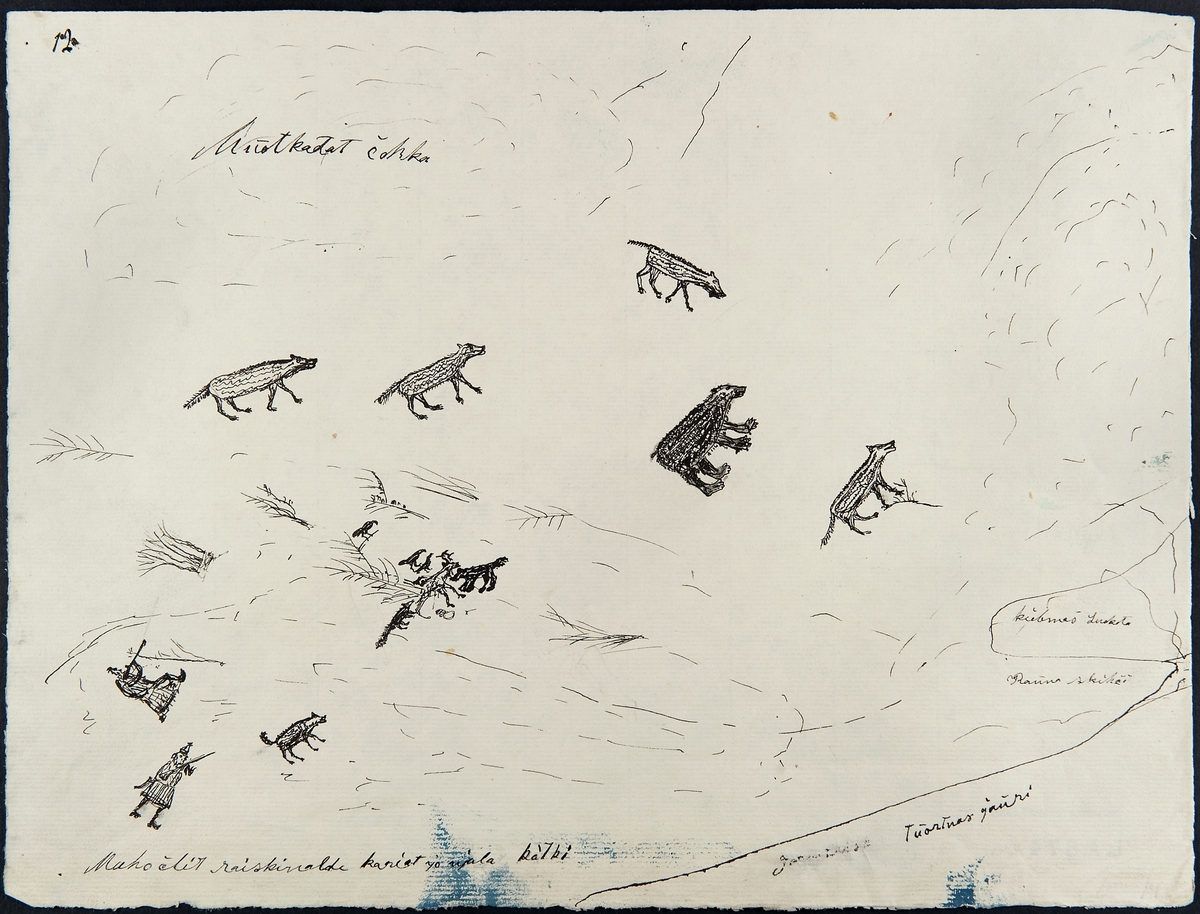 12
Muotkađat čohka
kübmeš Luokta
Raüna skihči
Tuortnos jaüri
Muhočlit raiskinalde kariat jo njala kâlbi